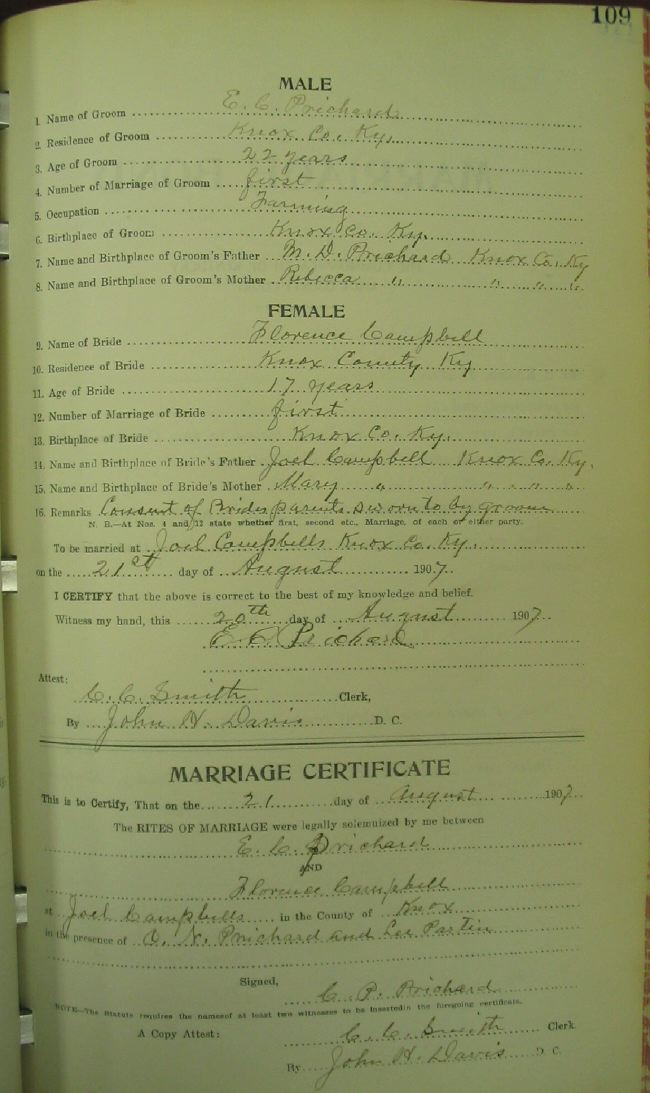 109
MALE
1. Name of Groom E. C. Prichard
2. Residence of Groom Knox Co. Ky.
3. Age of Groom 22 years
4. Number of Marriage of Groom first
5. Occupation Farming
6. Birthplace of Groom Knox Co. Ky.
7. Name and Birthplace of Groom's Father M. D. Prichard Knox Co. Ky
8. Name and Birthplace of Groom's Mother Rebecca " " " "
FEMALE
9. Name of Bride Florence Campbell
10. Residence of Bride Knox County Ky
11. Age of Bride 17 years
12. Number of Marriage of Bride first
13. Birthplace of Bride Knox Co. Ky.
14. Name and Birthplace of Bride's Father Joel Campbell Knox Co. Ky.
15. Name and Birthplace of Bride's Mother Mary " " " "
16. Remarks Consent of Brides parents sworn to by groom
N. B.—At Nos. 4 and 12 state whether first, second etc., Marriage, of each or either party.
To be married at Joel Campbells Knox Co. Ky.
on the 21st day of August 1907.
I CERTIFY that the above is correct to the best of my knowledge and belief.
Witness my hand, this 20th day of August 1907
E C Prichard
Attest:
C. C. Smith Clerk,
By John H. Davis D. C.
MARRIAGE CERTIFICATE
This is to Certify, That on the 21 day of August 1907.
The RITES OF MARRIAGE were legally solemnized by me between
E. C. Prichard
AND
Florence Campbell
at Joel Campbells in the County of Knox
in the presence of Prichard and Lee Partin
Signed,
C. P. Prichard
NOTE—The Statute requires the names of at least two witnesses to be inserted in the foregoing certificate.
A Copy Attest: C. C. Smith Clerk
By John H. Davis D. C.